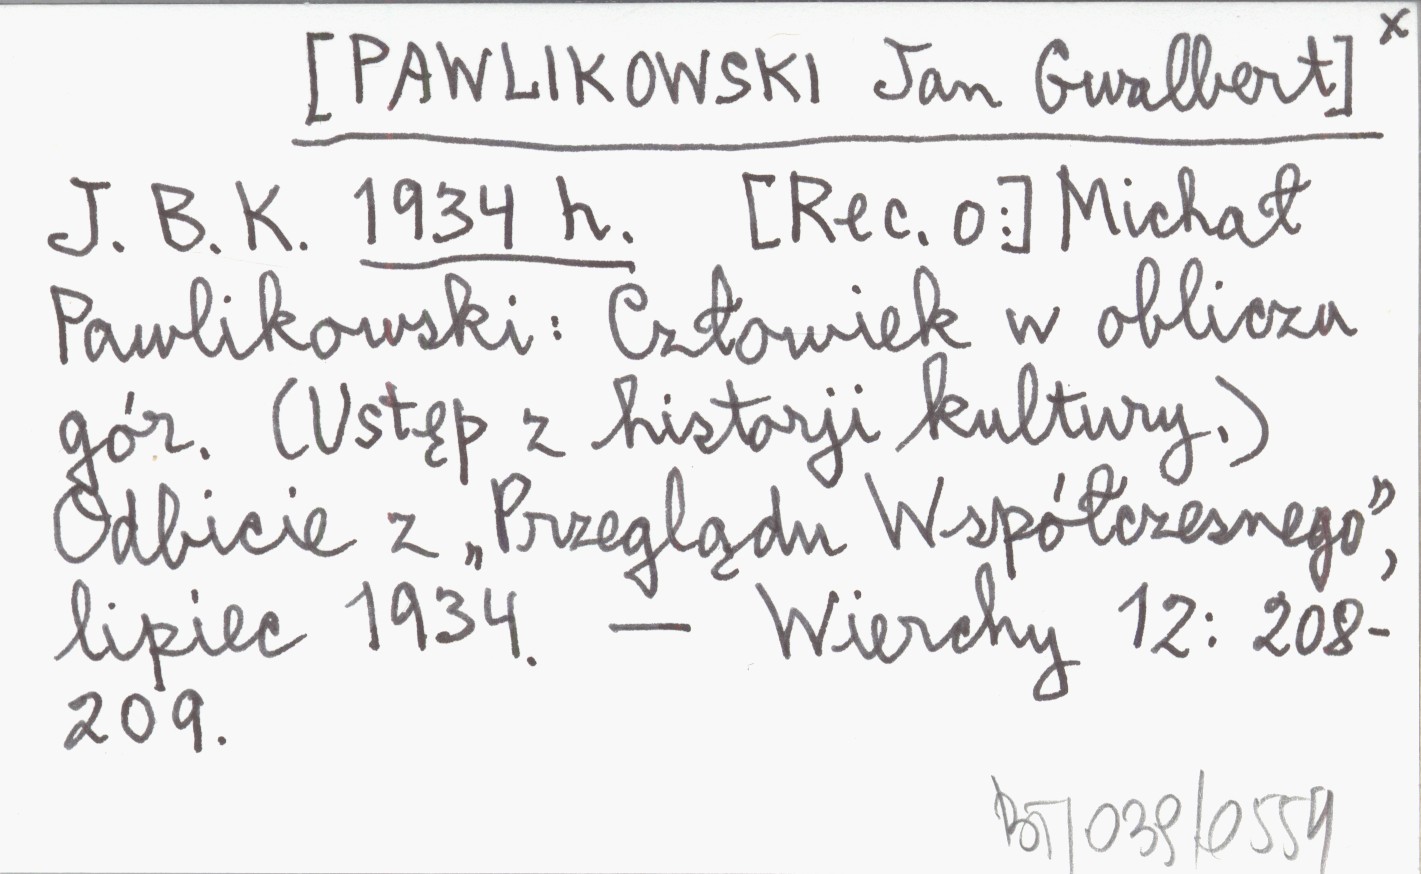 [PAWLIKOWSKI Jan Gwalbert] x
J. B. K. 1934 h. [Rec. o:] Michał
Pawlikowski: Człowiek w obliczu
gór. (Ustęp z historji kultury.)
Odbicie z „Przeglądu Współczesnego”,
lipiec 1934. — Wierchy 12: 208-
209.
BT/039/0559